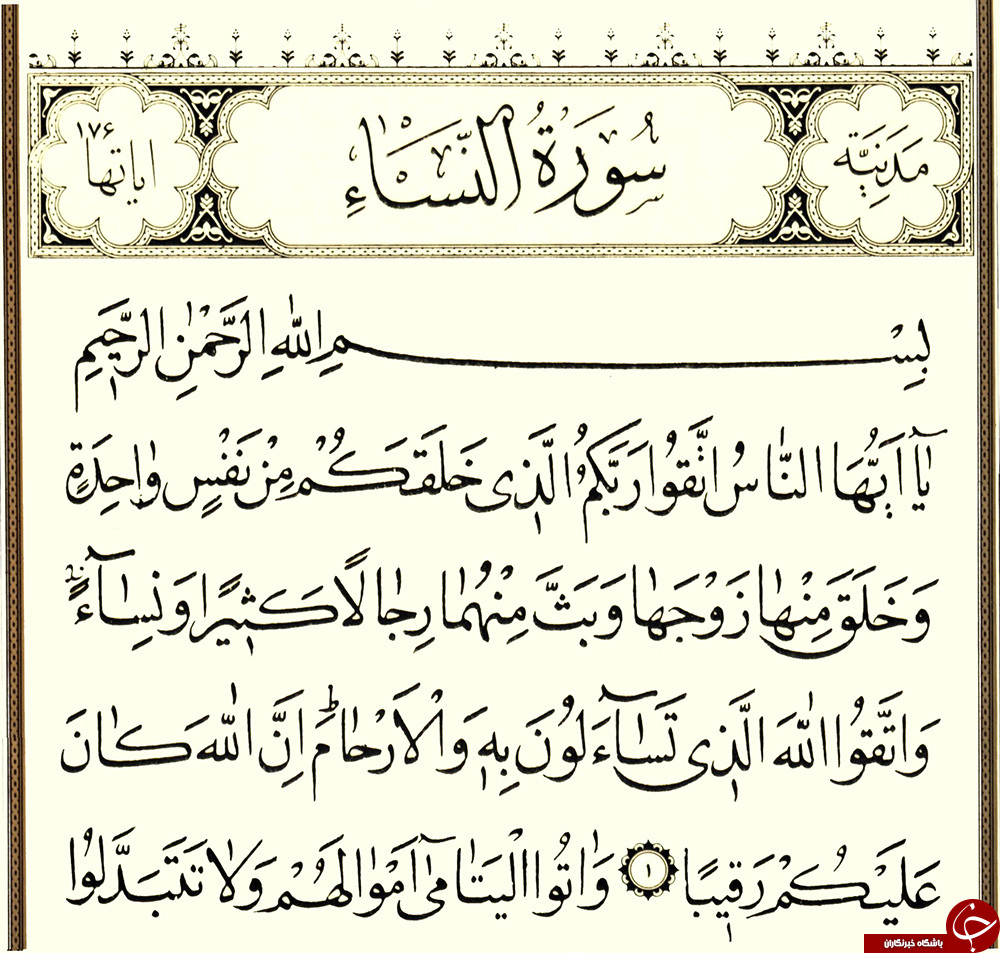 مَدَنِيَّة
سُورَةُ النِّسَاءِ
۱۷۶
اياتها
بِسْمِ اللّٰهِ الرَّحْمٰنِ الرَّحٖيمِ
يٰٓا اَيُّهَا النّٰاسُ اتَّقُوا رَبَّكُمُ الَّذٖى خَلَقَكُمْ مِنْ نَفْسٍ وٰاحِدَةٍ
وَ خَلَقَ مِنْهٰا زَوْجَهٰا وَ بَثَّ مِنْهُمٰا رِجٰالًا كَثٖيرًا وَ نِسٰٓاءً
وَ اتَّقُوا اللّٰهَ الَّذٖى تَسٰٓاءَلُونَ بِهٖ وَ الْاَرْحٰامَ ۚ اِنَّ اللّٰهَ كٰانَ
عَلَيْكُمْ رَقٖيبًا ۱ وَ اٰتُوا الْيَتٰامىٰٓ اَمْوٰالَهُمْ وَ لٰا تَتَبَدَّلُوا
باشگاه خبرنگاران